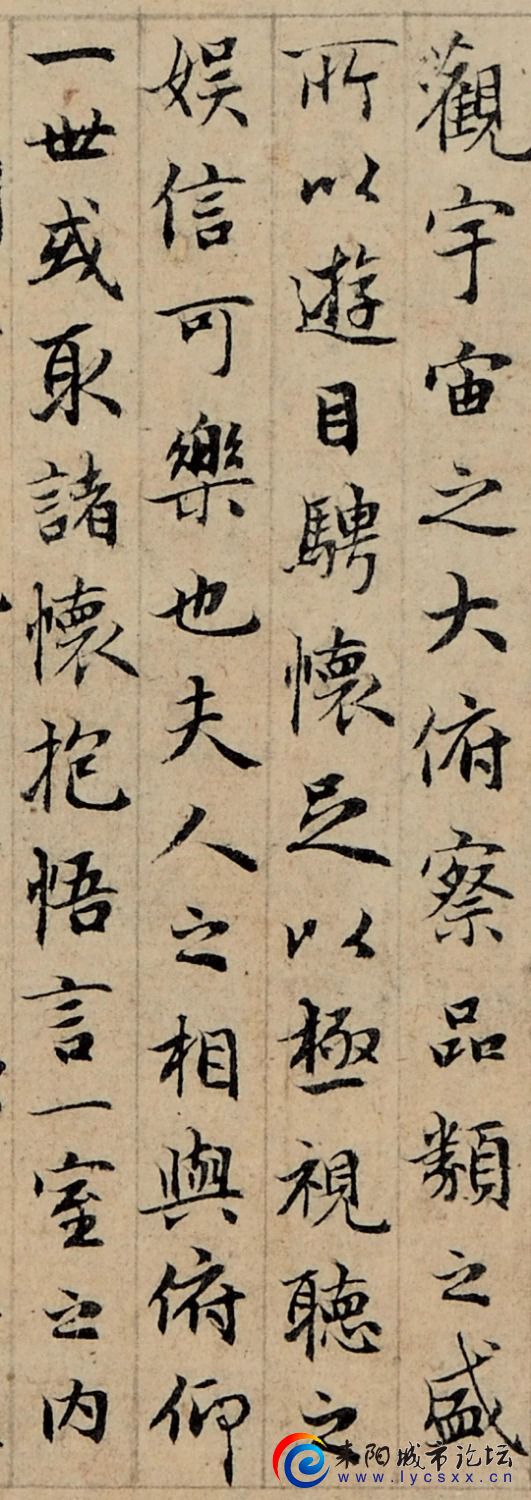 觀宇宙之大俯察品類之盛
所以遊目騁懷足以極視聽之
娛信可樂也夫人之相與俯仰
一世或取諸懷抱悟言一室之内
耒阳城市论坛
www.lycsxx.cn